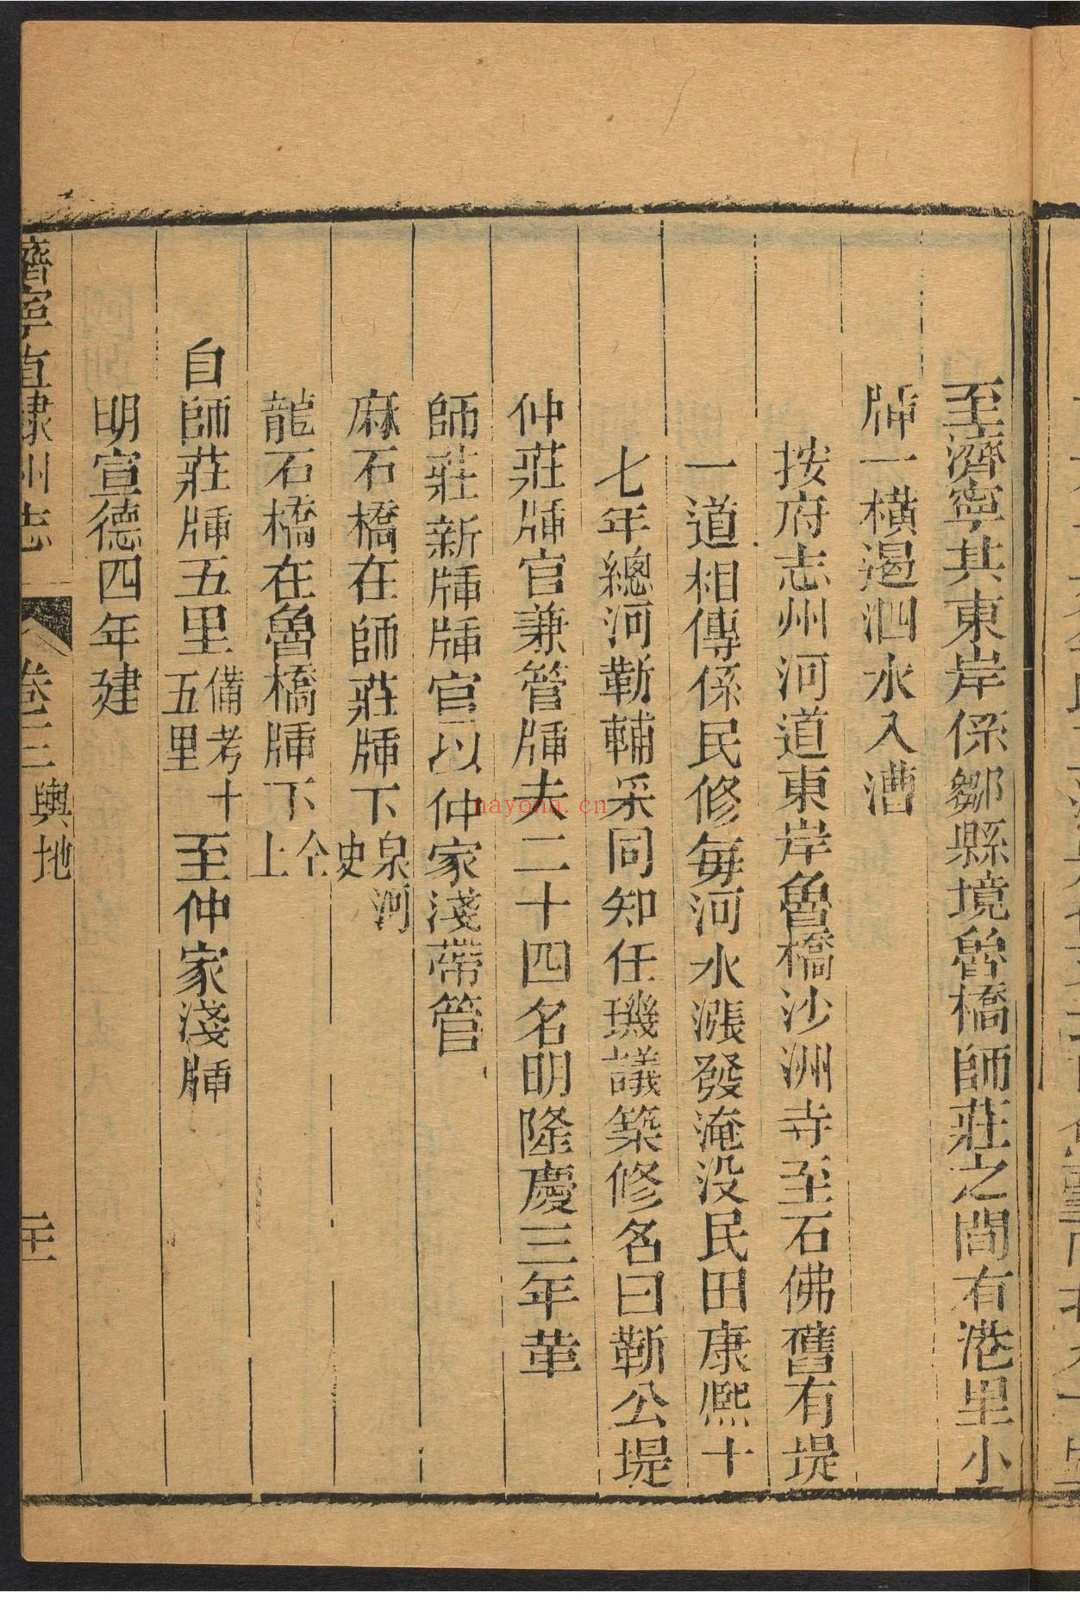 至濟寧其東岸係鄒縣境魯橋師莊之間有港里小
牐一橫遏泗水入漕
按府志州河道東岸魯橋沙洲寺至石佛舊有堤
一道相傳係民修每河水漲發淹没民田康熙十
七年總河靳輔采同知任璣議築修名曰靳公堤
仲莊牐官兼管牐夫二十四名明隆慶三年革
師莊新牐牐官以仲家淺帶管
麻石橋在師莊牐下泉河史
龍石橋在魯橋牐下仝上
自師莊牐五里備考十五里至仲家淺牐
明宣德四年建
濟寧直隸州志 卷三 輿地 二十
nayona.cn